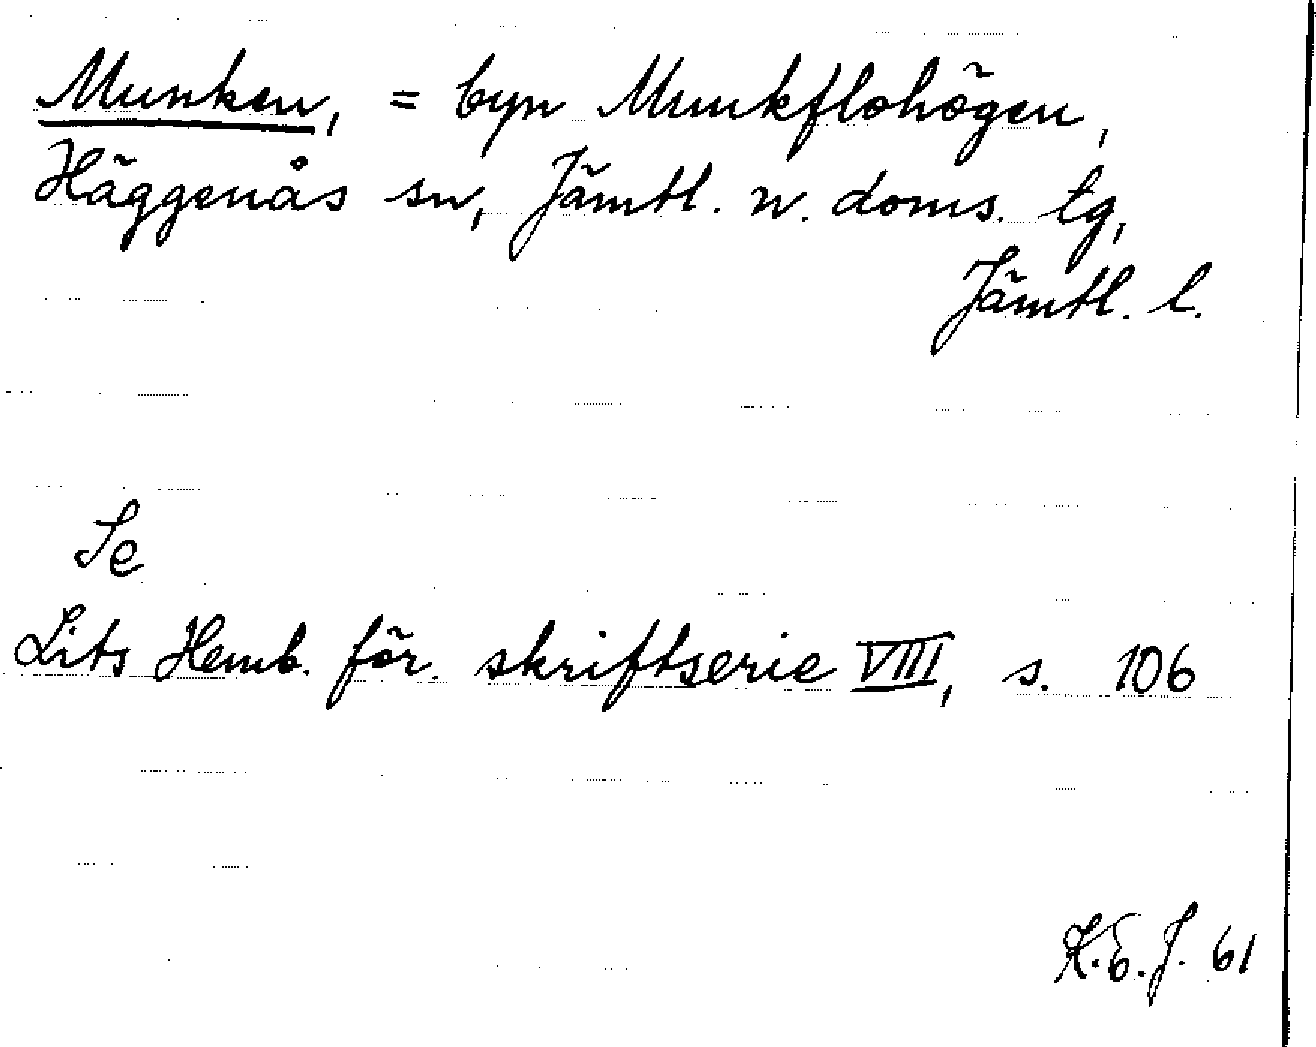 Munken, = byn Munkflohögen,
Häggenås sn, Jämtl. n. doms. tg,
Jämtl. l.
Se
Lits Hemb. för. skriftserie VIII, s. 106
K.E.J. 61